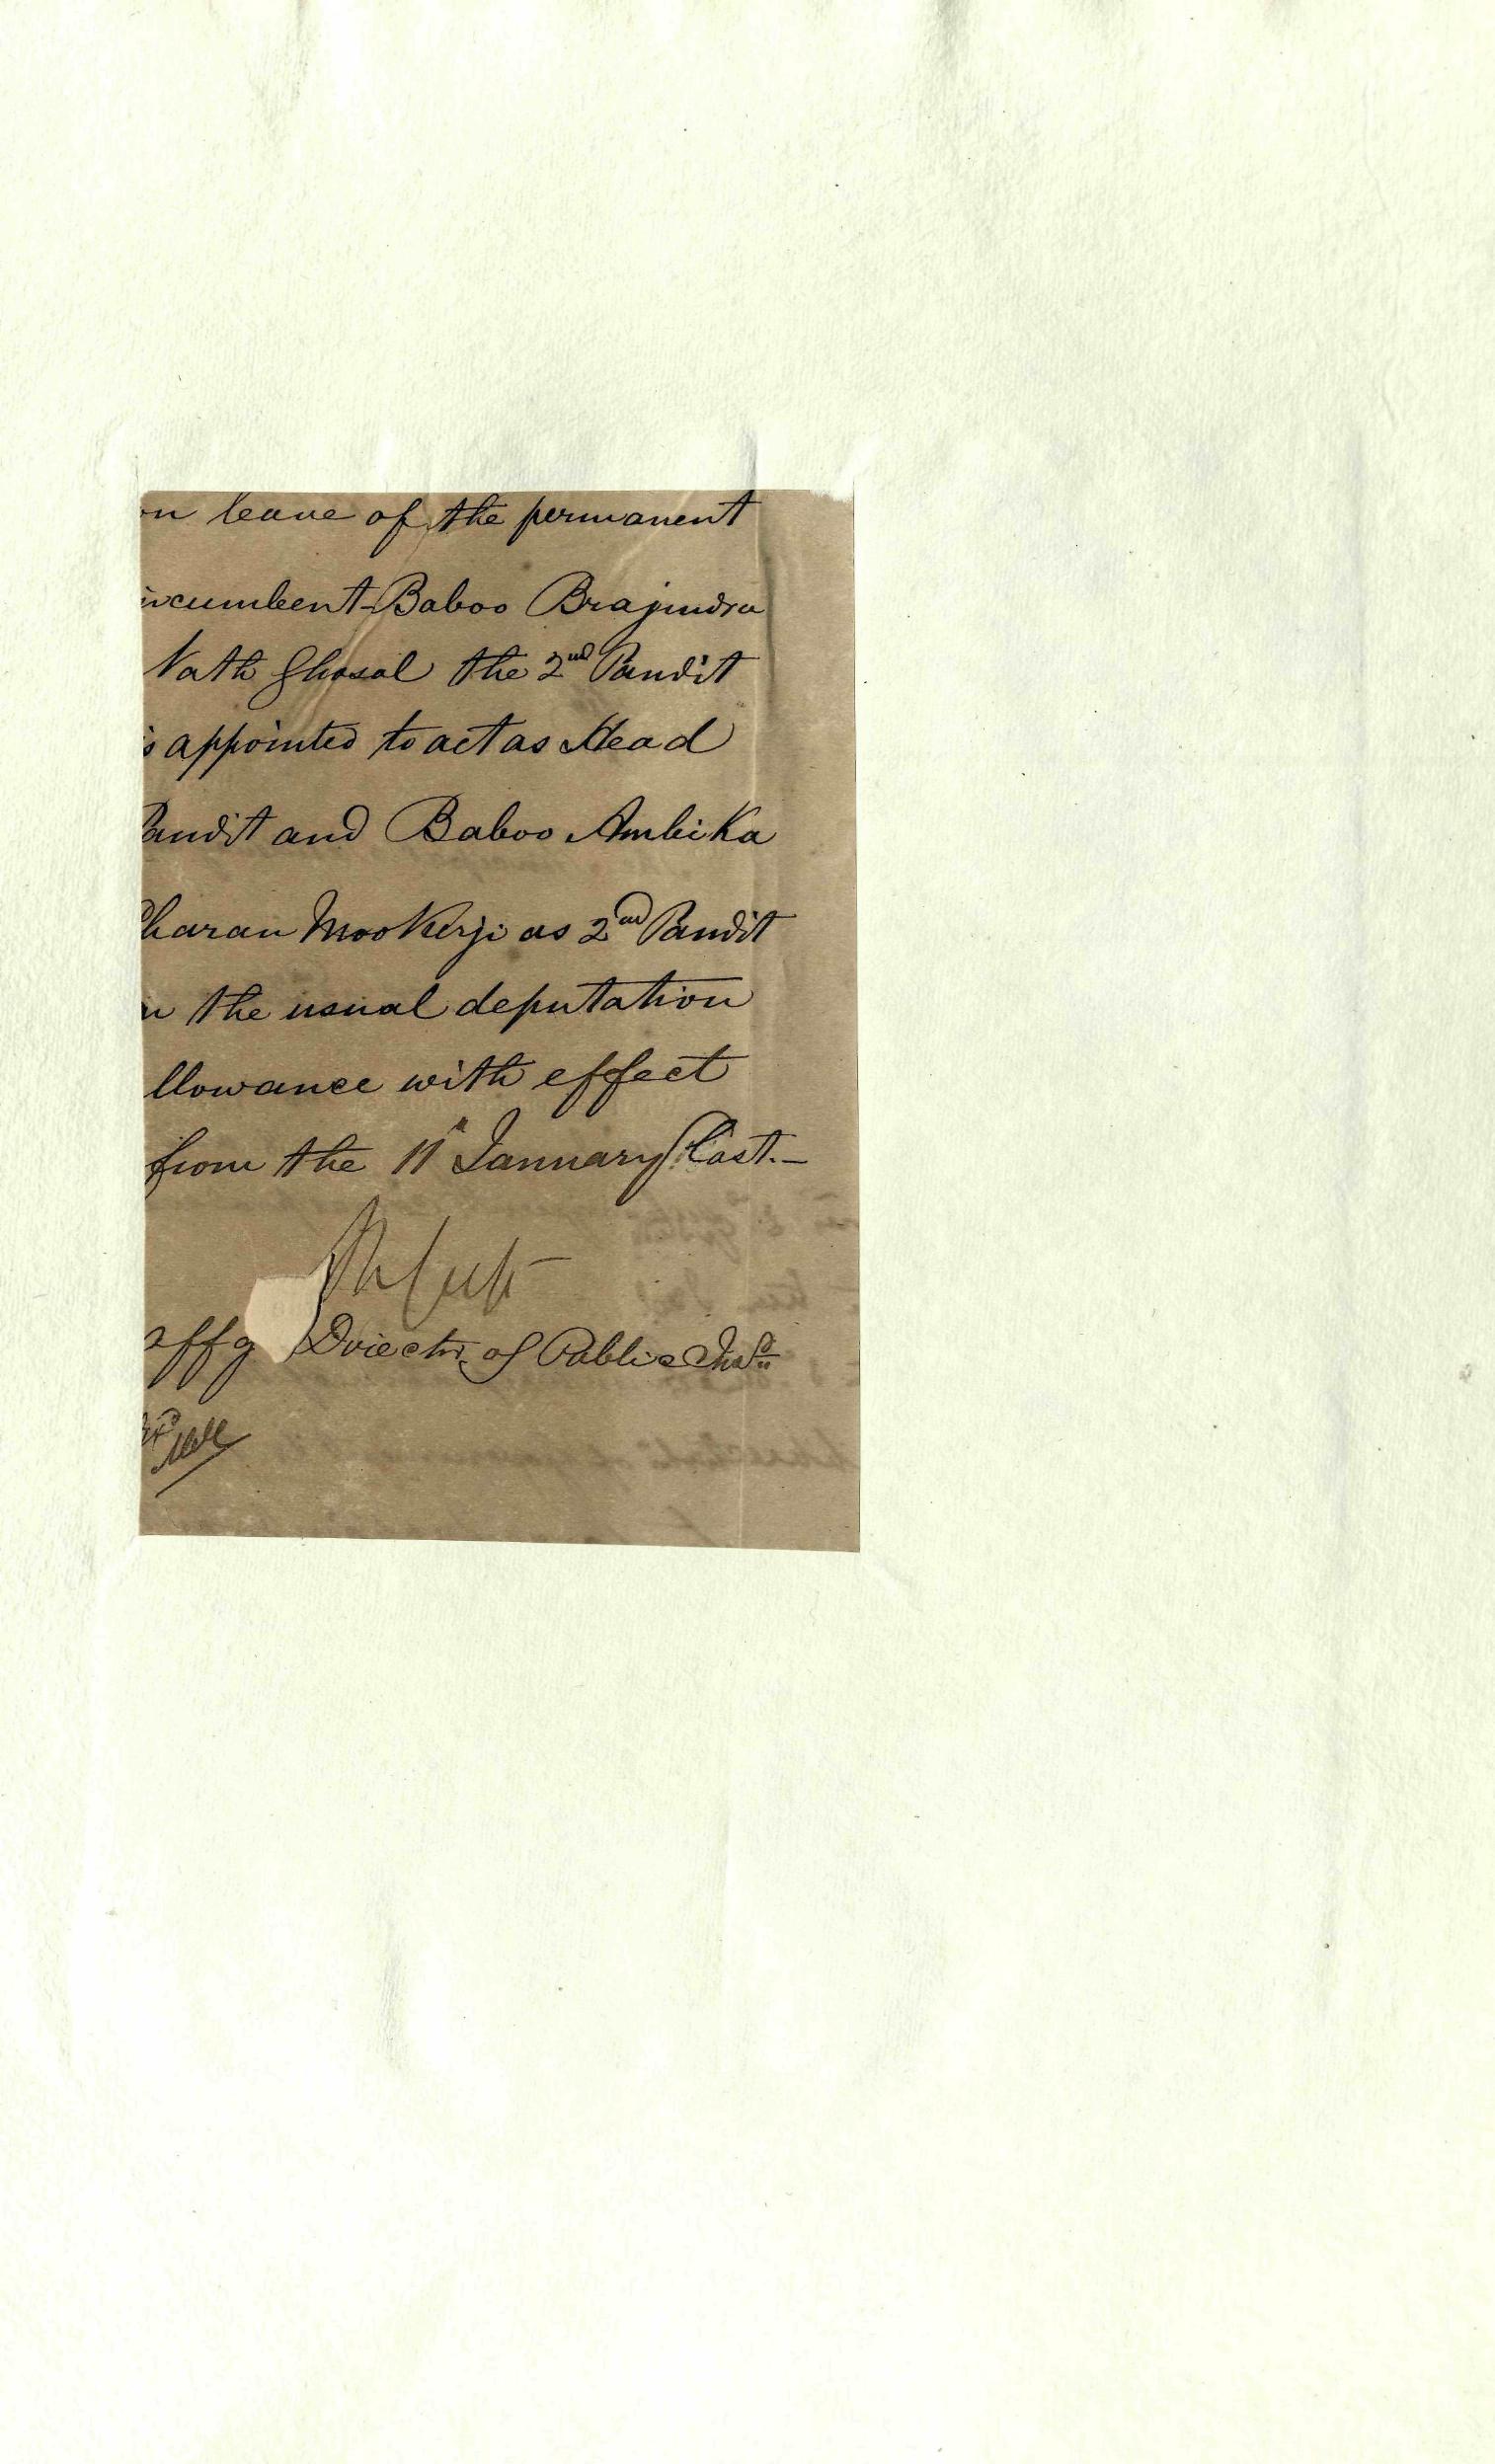 on leave of the permanent
incumbent Baboo Brajendra
Nath Ghosal the 2nd Pandit
is appointed to act as Head
Pandit and Baboo Ambika
Charan Mookerji as 2nd Pandit
on the usual deputation
llowance with effect
from the 11th January last.—
offg Director of Public Instn